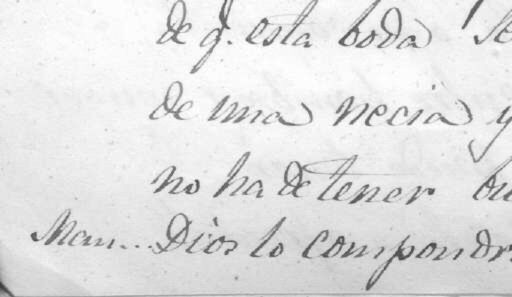 de q. esta boda se
de una necia y
no ha de tener bu
Man... Dios lo compondr